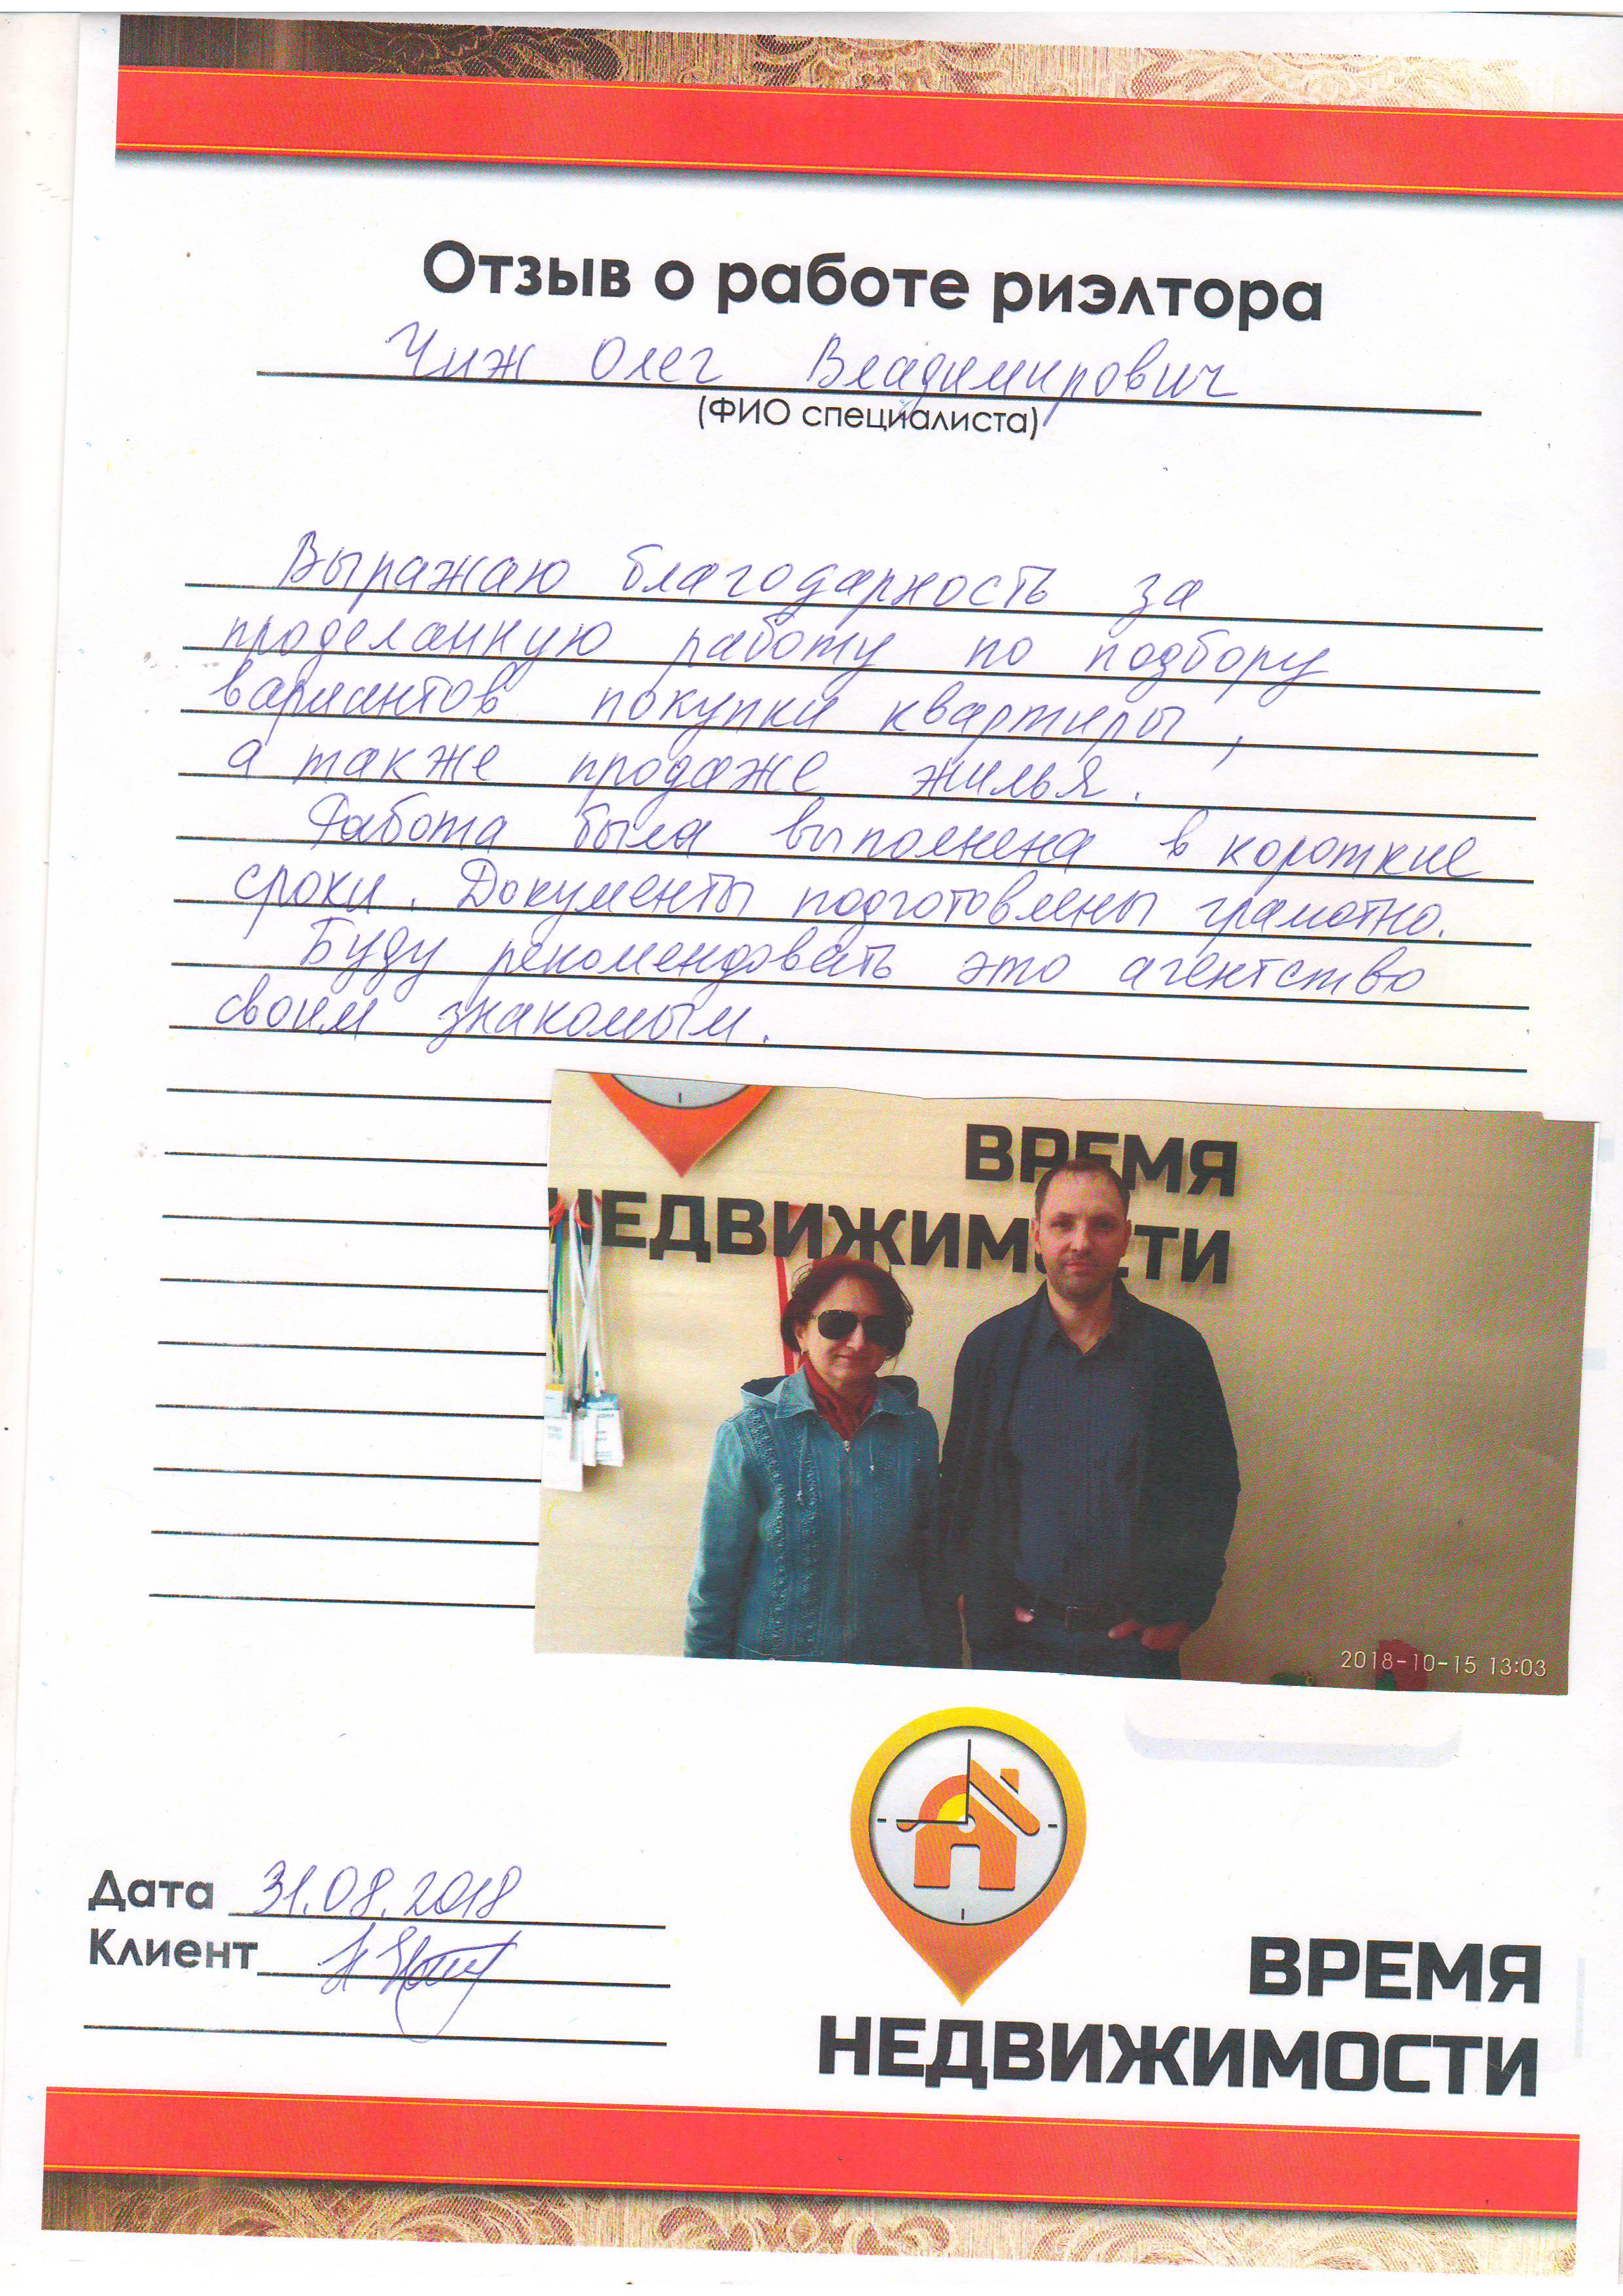 Отзыв о работе риэлтора
Чиж Олег Владимирович
(ФИО специалиста)
Выражаю благодарность за
проделанную работу по подбору
вариантов покупки квартиры,
а также продаже жилья.
Работа была выполнена в короткие
сроки. Документы подготовлены грамотно.
Буду рекомендовать это агентство
своим знакомым.
ВРЕМЯ
НЕДВИЖИМОСТИ
2018-10-15 13:03
Дата 31.08.2018
Клиент
ВРЕМЯ
НЕДВИЖИМОСТИ